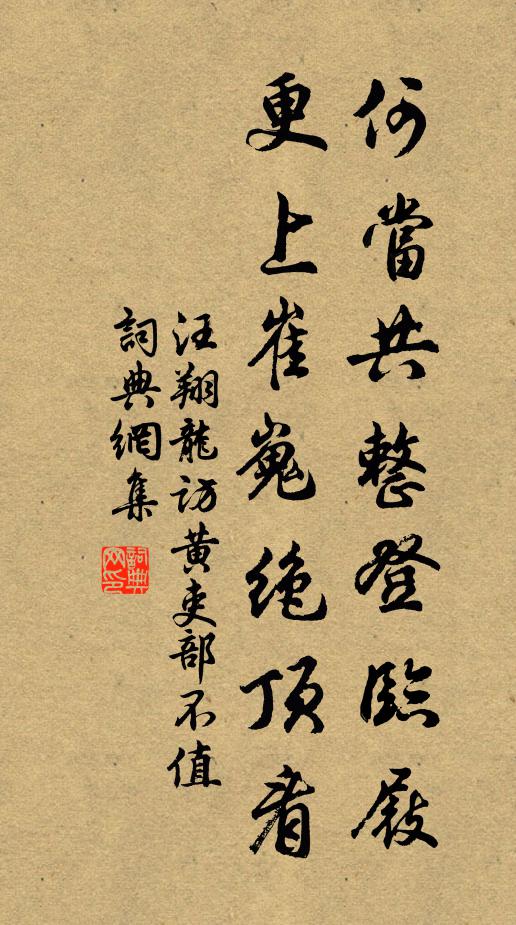 何當共整登臨屐
更上崔嵬絶頂看
汪翔龍訪黄吏部不值
詞典網集
詞典網印